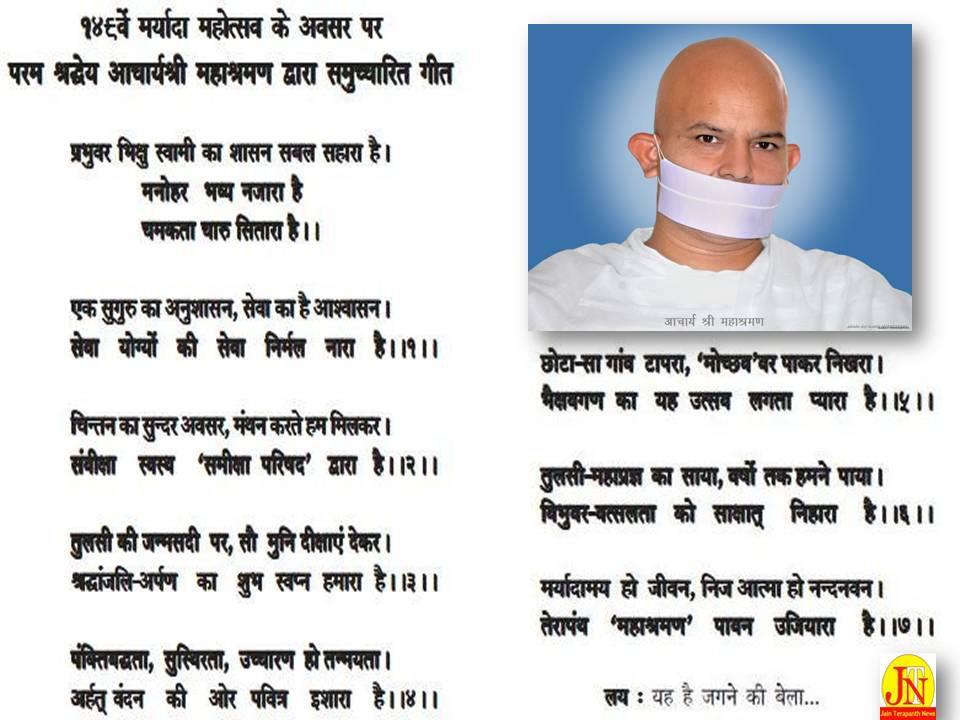 १४९वें मर्यादा महोत्सव के अवसर पर
परम श्रद्धेय आचार्यश्री महाश्रमण द्वारा समुच्चारित गीत
प्रभुवर भिक्षु स्वामी का शासन सबल सहारा है।
मनोहर भव्य नजारा है
चमकता चारु सितारा है।।
एक सुगुरु का अनुशासन, सेवा का है आश्वासन।
सेवा योग्यों की सेवा निर्मल नारा है।।१।।
चिन्तन का सुन्दर अवसर, मंथन करते हम मिलकर।
संवीक्षा स्वस्थ 'समीक्षा परिषद' द्वारा है।।२।।
तुलसी की जन्मसदी पर, सौ मुनि दीक्षाएं देकर।
श्रद्धांजलि-अर्पण का शुभ स्वप्न हमारा है।।३।।
पंक्तिबद्धता, सुस्थिरता, उच्चारण हो तन्मयता।
अर्हत् वंदन की ओर पवित्र इशारा है।।४।।
आचार्य श्री महाश्रमण
छोटा-सा गांव टापरा, 'मोच्छव'वर पाकर निखरा।
भैक्षवगण का यह उत्सव लगता प्यारा है।।५।।
तुलसी-महाप्रज्ञ का साया, वर्षों तक हमने पाया।
विभुवर-वत्सलता को साक्षात् निहारा है।।६।।
मर्यादामय हो जीवन, निज आत्मा हो नन्दनवन।
तेरापंथ 'महाश्रमण' पावन उजियारा है।।७।।
लय : यह है जगने की बेला...
JTN
Jain Terapanth News